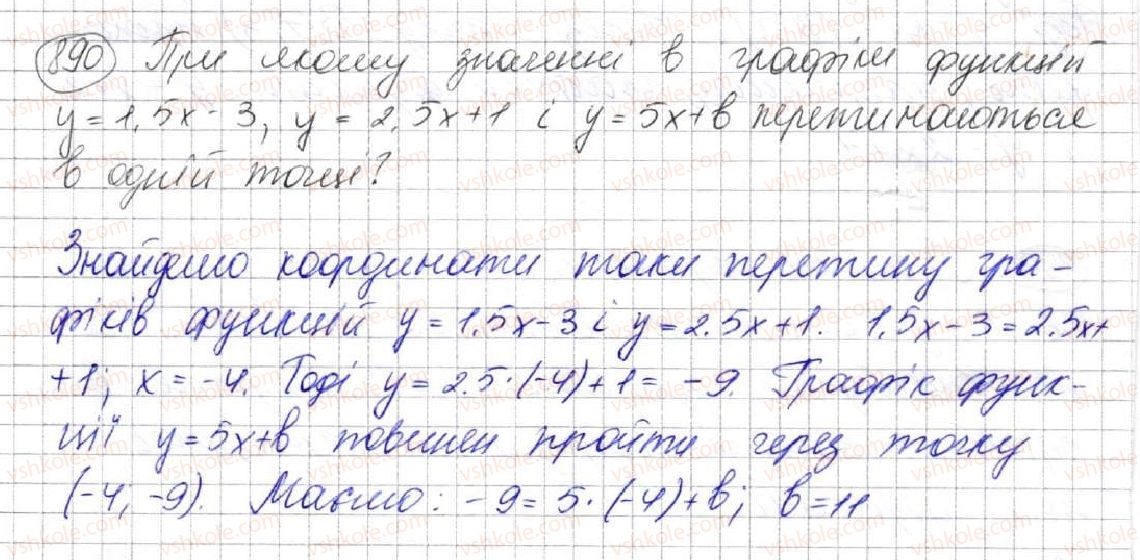 890 При якому значенні в графіки функцій
y=1,5x-3, y=2,5x+1 і y=5x+в перетинаються
в одній точці?
Знайдемо координати точки перетину гра-
фіків функцій y=1,5x-3 і y=2.5x+1. 1,5x-3=2.5x+
+1; x=-4. Тоді y=2.5·(-4)+1=-9. Графік функ-
ції y=5x+в повинен пройти через точку
(-4; -9). Маємо: -9=5·(-4)+в; в=11